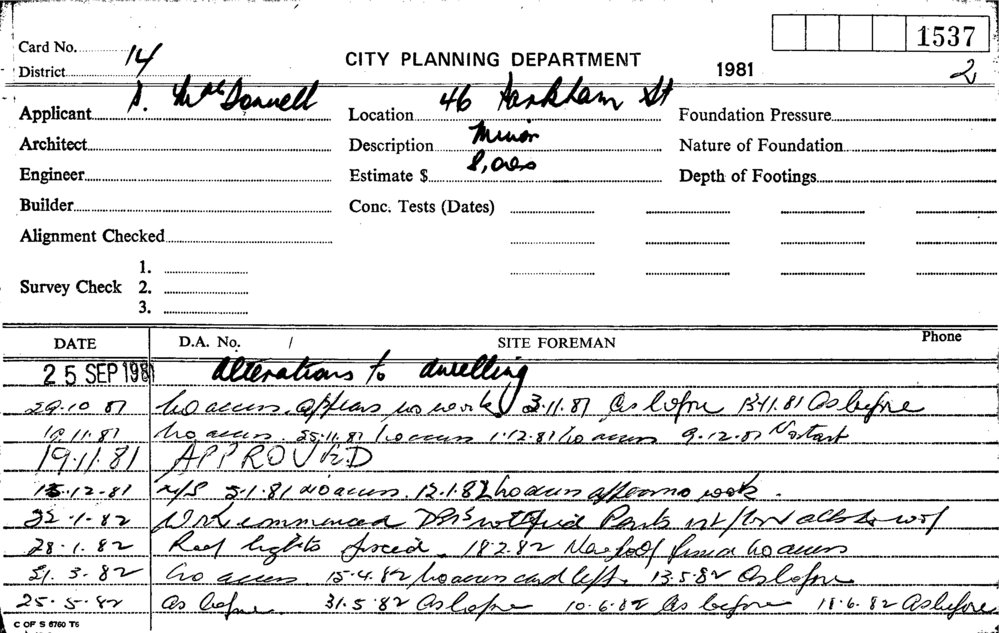 1537
Card No. 14 CITY PLANNING DEPARTMENT
District 1981 2
Applicant S. MacDonnell Location 46 Markham St Foundation Pressure
Architect Description Minor Nature of Foundation
Engineer Estimate $ 8,000 Depth of Footings
Builder Conc. Tests (Dates)
Alignment Checked
1.
Survey Check 2.
3.
DATE D.A. No. / SITE FOREMAN Phone
25 SEP 1981 Alterations to dwelling
29.10 81 No access. appears no work 3.11.81 As before 13.11.81 As before
No access. 25.11.81 No access 1.12.81 No access 9.12.81 No start
19.11.81 APPROVED
15.12.81 N/S 5.1.81 No access. 12.1.82 No access appears no work.
22-1-82 Work commenced notified
28.1.82 Roof lights fixed. 18.2.82 New roof fixed No access
31.3.82 No access 15.4.82 No access card left. 13.5.82 As before
25.5.82 As before. 31.5.82 As before 10.6.82 As before 18.6.82 As before
C OF S 6760 T5